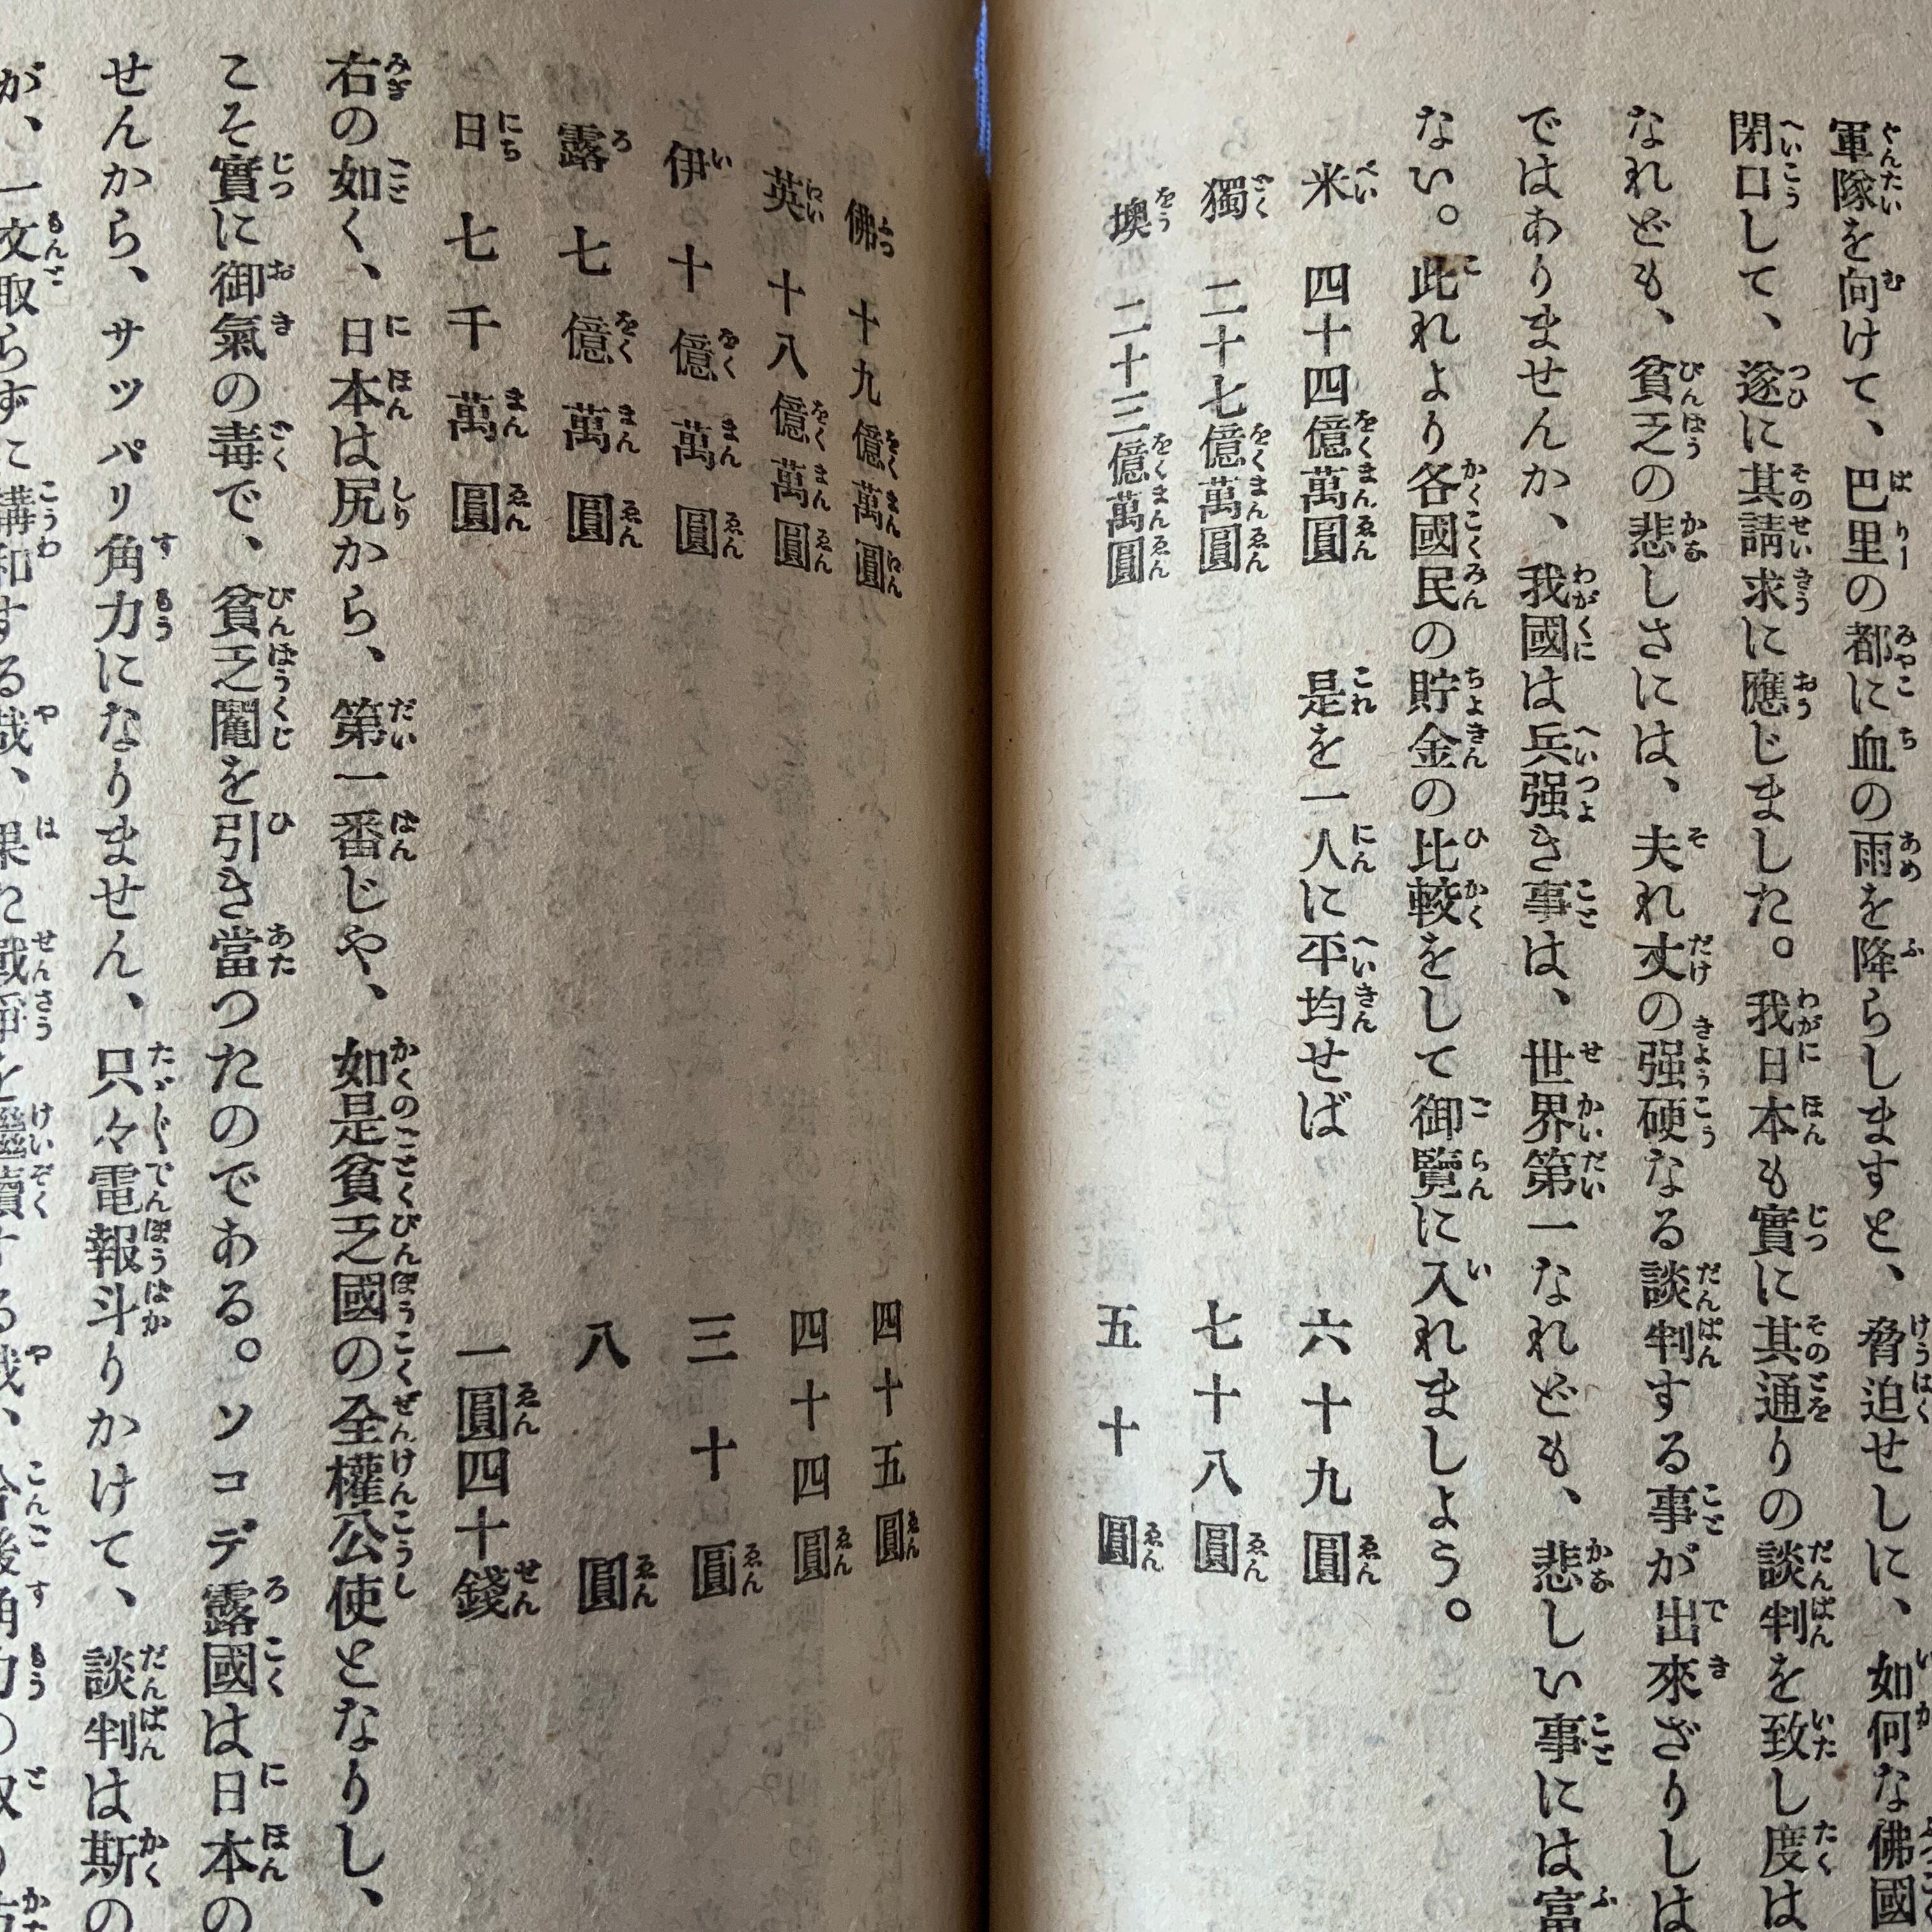 軍隊を向けて、巴里の都に血の雨を降らしますと、脅迫せしに、如何な佛國
閉口して、遂に其請求に應じました。我日本も實に其通りの談判を致し度は
なれども、貧乏の悲しさには、夫れ丈の强硬なる談判する事が出來ざりしは
ではありませんか、我國は兵强き事は、世界第一なれども、悲しい事には富
ない。此れより各國民の貯金の比較をして御覽に入れましよう。
米 四十四億萬圓 是を一人に平均せば 六十九圓
獨 二十七億萬圓 七十八圓
墺 二十三億萬圓 五十圓
佛 十九億萬圓 四十五圓
英 十八億萬圓 四十四圓
伊 十億萬圓 三十圓
露 七億萬圓 八圓
日 七千萬圓 一圓四十錢
右の如く、日本は尻から、第一番じや、如是貧乏國の全權公使となりし、
こそ實に御氣の毒で、貧乏鬮を引き當つたのである。ソコデ露國は日本の
せんから、サッパリ角力になりません、只々電報斗りかけて、談判は斯の
が、一文取らずに講和する哉、果た戰爭を繼續する哉、今後角力の取り方